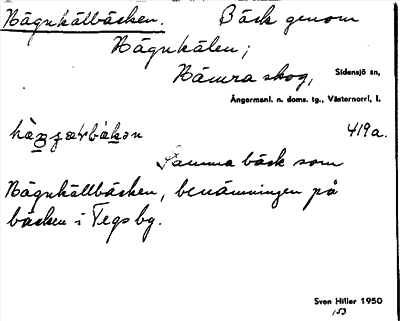 Hägnkällbäcken. Bäck genom
Hägnkälen;
Hämra skog, Sidensjö sn,
Ångermanl. n. doms. tg., Västernorrl. l.
419a.
Samma bäck som
Hägnkällbäcken, benämningen på
bäcken i Tegsbg.
Sven Hiller 1950
153